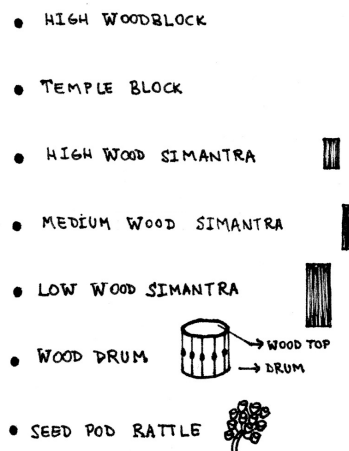 • HIGH WOODBLOCK
• TEMPLE BLOCK
• HIGH WOOD SIMANTRA
• MEDIUM WOOD SIMANTRA
• LOW WOOD SIMANTRA
• WOOD DRUM → WOOD TOP
→ DRUM
• SEED POD RATTLE